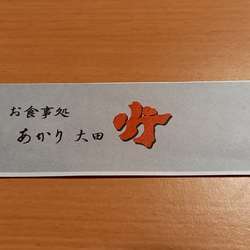 お食事処
あかり 大田
灯